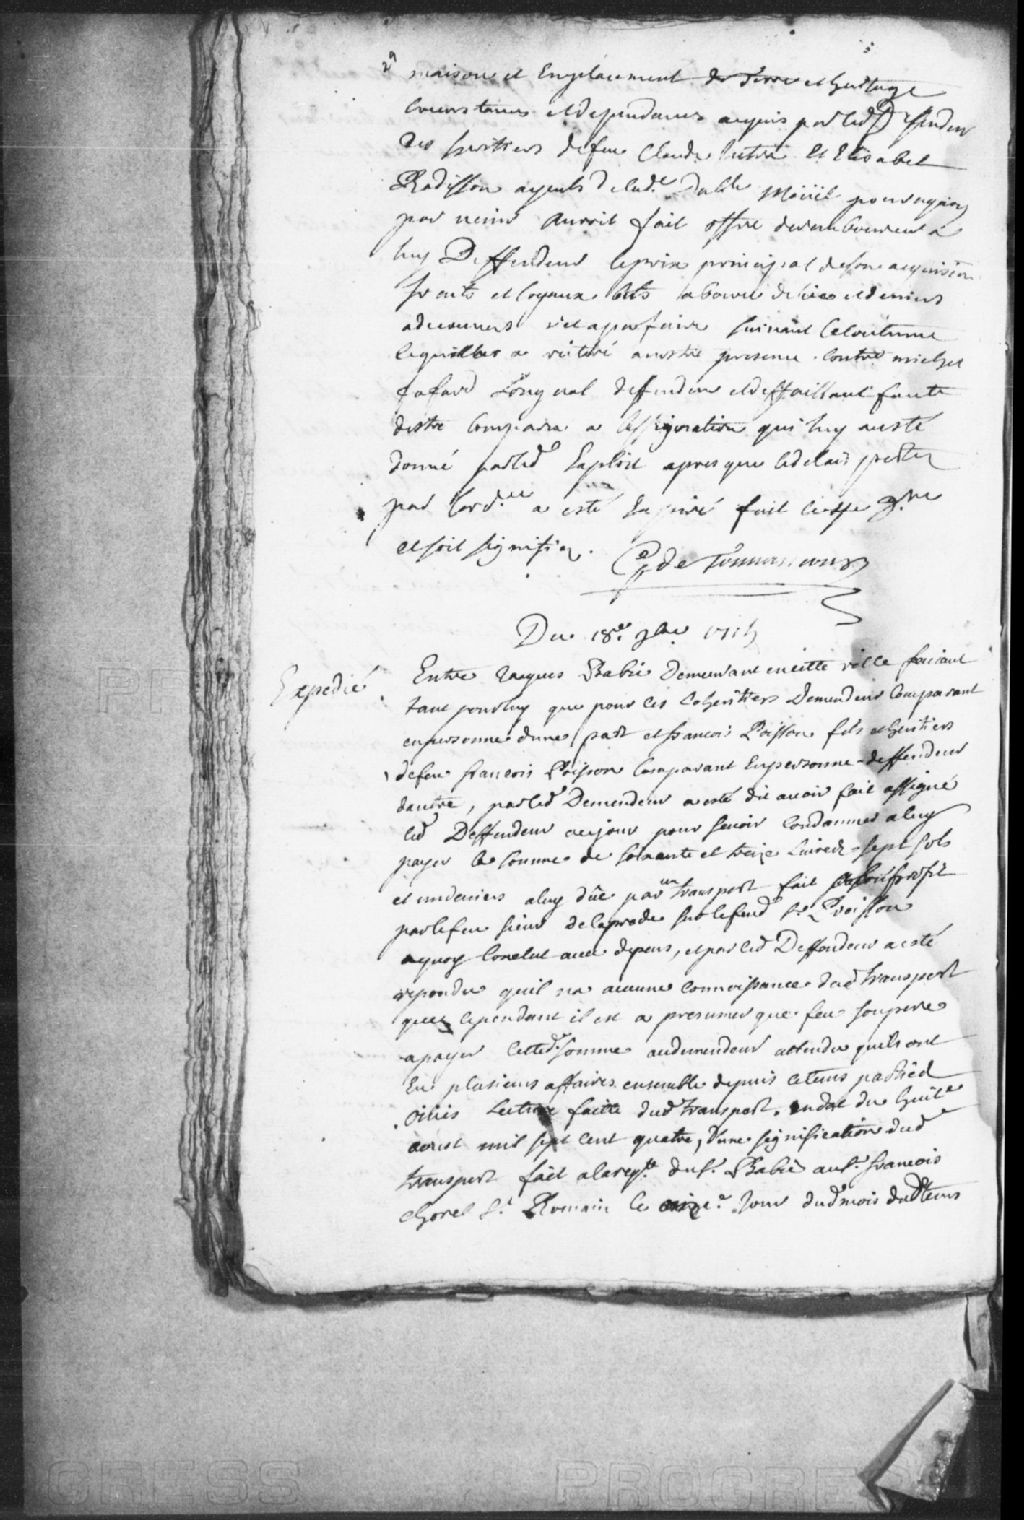 maison et Emplacement de Terre et heritage
Circonstances et dependances acquis par led. deffendeur
des heritiers de feu Claude et Elisabet
Radisson ayeuls de lad. Dalle pour
par auroit fait offre de rembourcer a
luy Deffendeur le prix principal de son acquisition
fraits et loyaux couts a bource deliée et deniers
a descouvert et a parfaire suivant la Coutume
lequel a reiteré a nostre presence. Contre michel
fafard Longval deffendeur et deffaillant faute
destre Comparu a Lassignation qui luy a esté
donné par led. Exploit apres que le delais porter
par Lord.ce a esté Expiré fait ce 9bre
et soit signifié. C. de Tonnancour
Du 18e 9bre
Expedié. Entre Jaques Babie Demeurant en cette ville faisant
tant pour luy que pour ses Coheritiers Demandeur Comparant
en personne d'une part et francois Poisson fils et heritiers
de feu francois Poisson Comparant En personne deffendeur
dautre, par led. Demandeur a esté dit avoir fait assigné
led. Deffendeur a ce jour pour se voir Condamner a luy
payer la somme de soixante et treize Livres sept sols
et deniers a luy dûe par un transport fait a son proffit
par le feu sieur de laprade sur le feud. Sr. Poisson
a quoy Conclut avec depens, et par led. Deffendeur a esté
repondu quil na aucune connoissance dud. transport
que cependant il est a presumer que feu son pere
a payer cetted. somme au demandeur attendu quils ont
Eu plusieurs affaires ensemble depuis ce tems
Oüies Lecture faitte dud. transport. en date du huite
aoust mil sept cent quatre, d'une signification dud.
transport fait a la reqte. du Sr. Babie au Sr. francois
Chorel St. Romain le onze. jour dud. mois dud. tems